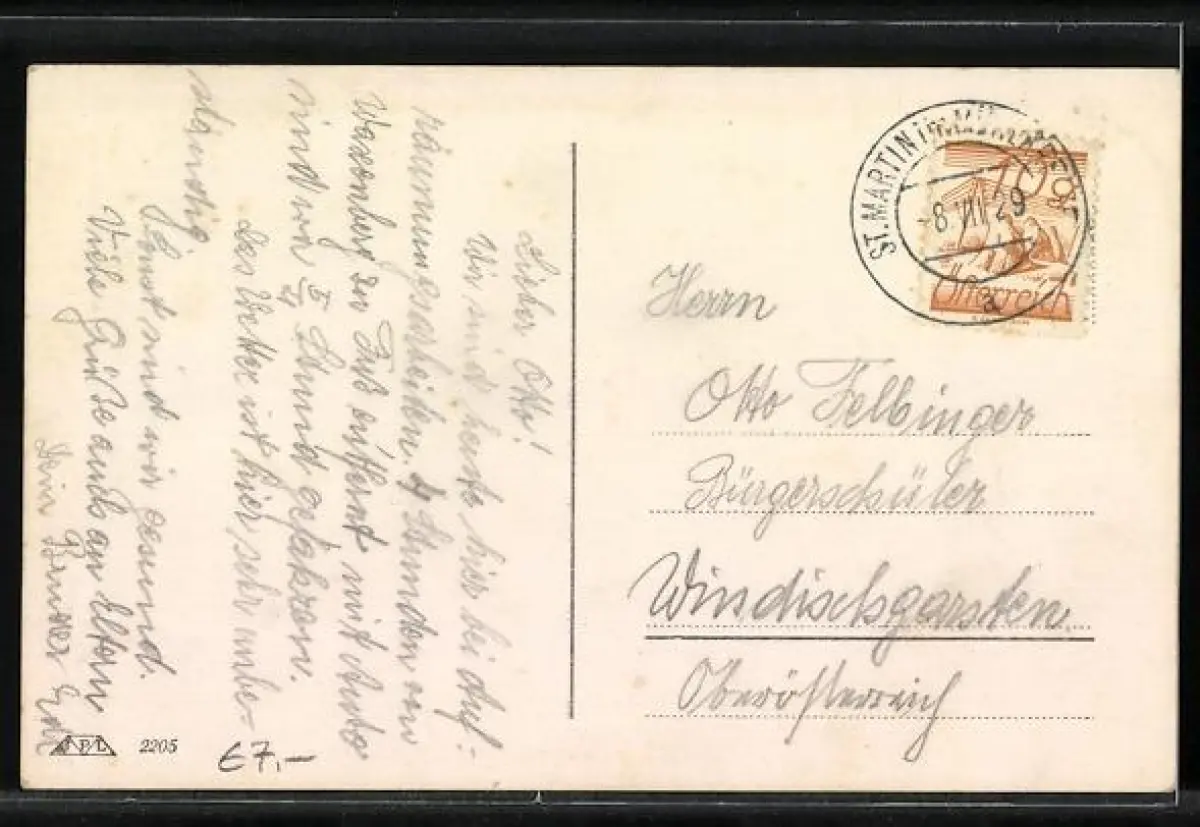 Lieber Otto!
Wir sind heute hier bei Auf-
räumungsarbeiten. 4 Stunden von
Waxenberg zu Fuß entfernt mit Auto
sind wir Stund gefahren.
Das Wetter ist hier sehr unbe-
ständig
Sonst sind wir gesund.
Viele Grüße auch an Eltern
Dein Bruder
Herrn
Otto Felbinger
Bürgerschüler
Windischgarsten
Oberösterreich
ST. MARTIN IM MÜHLKREIS
-8.VII.29
a
10 Gr
Österreich
P/L
2205
€7,-